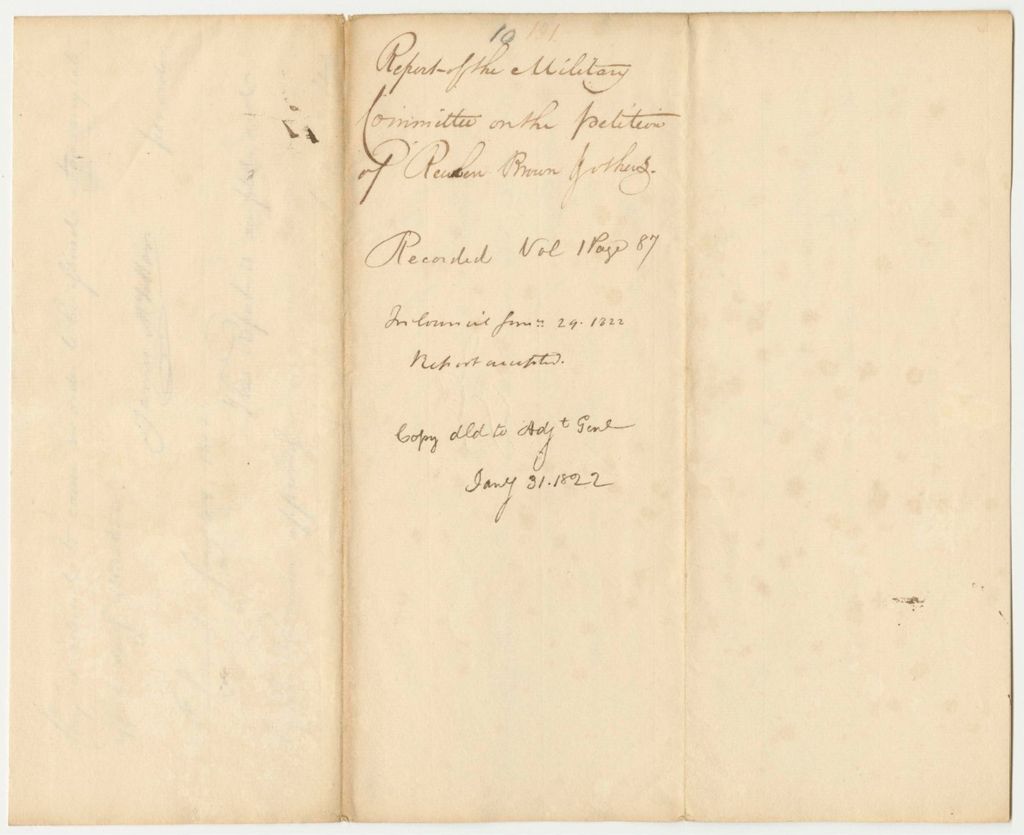 10 101
Report of the Military
Committee on the petition
of Reuben Brown & others.
Recorded Vol 1 Page 87
In Council Jany 29. 1822
Report accepted.
Copy dld to Adjt Genl
Jany 31. 1822